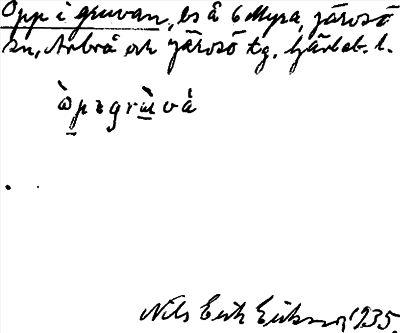 Opp i gruvan, ls å 6 Myra, Järvsö
sn, Arbrå och Järvsö tg. Gävleb. l.
òpɪgrùvá
Nils Erik Eriksson 1935.